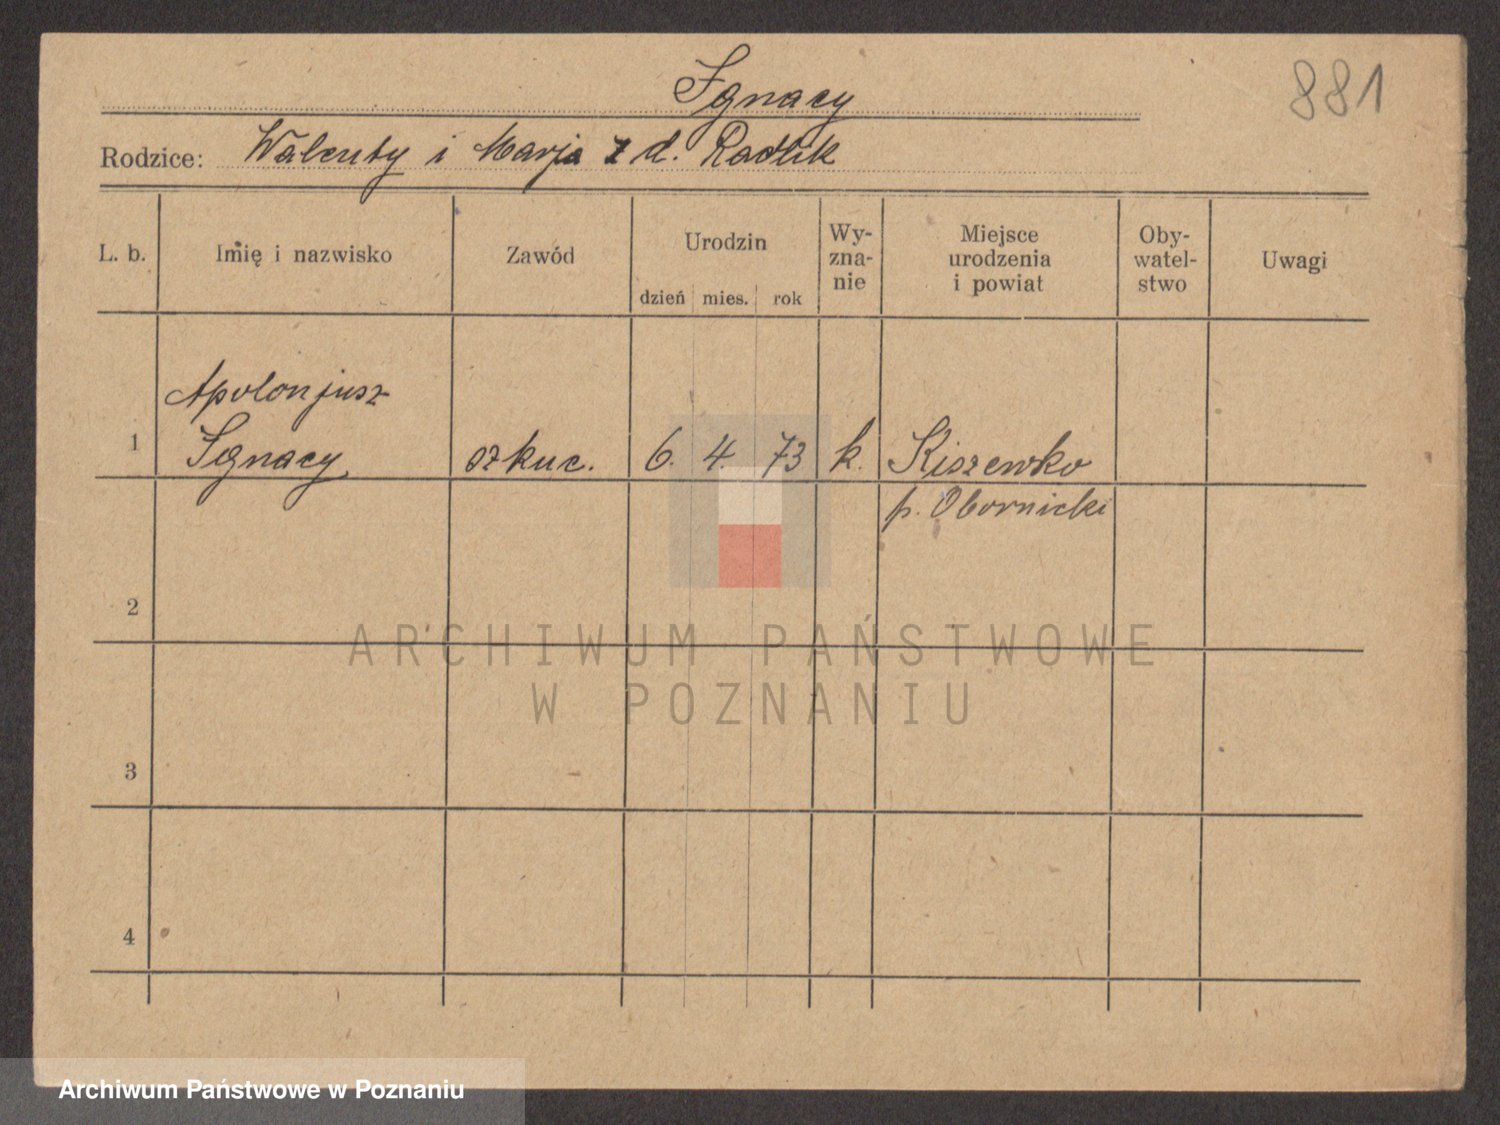 Ignacy
881
Rodzice: Walenty i Marja z d. Radlik
L. b. Imię i nazwisko Zawód Urodzin Wy-zna-nie Miejsce urodzenia i powiat Oby-watel-stwo Uwagi
dzień mies. rok
Apolonjusz
1 Ignacy szkuc. 6. 4. 73 k. Kiszewko
p. Obornicki
2
ARCHIWUM PAŃSTWOWE
W POZNANIU
3
4
Archiwum Państwowe w Poznaniu